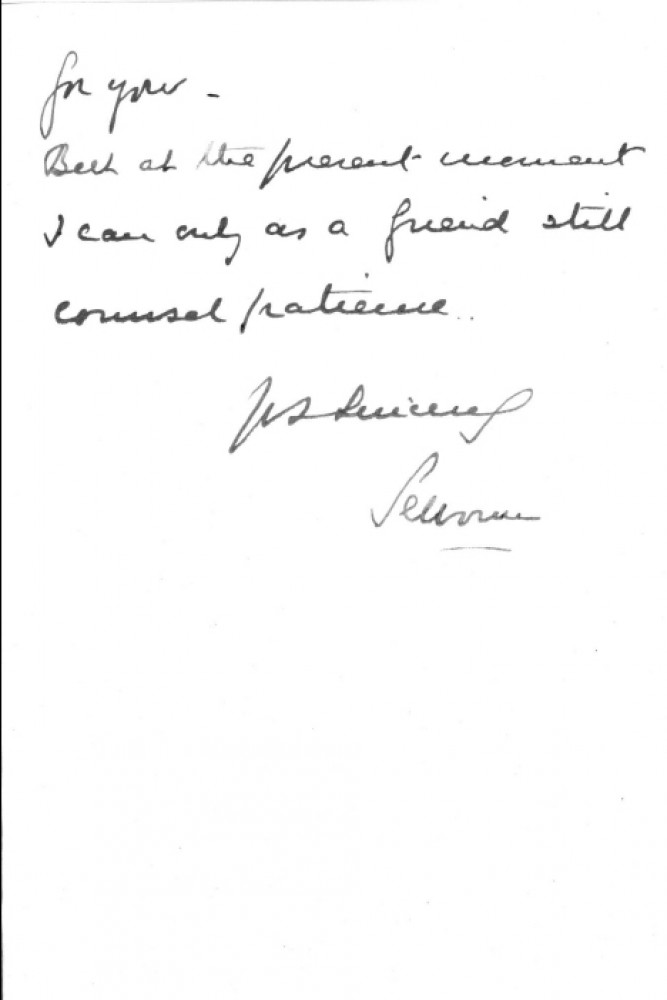 for you -
But at the present moment
I can only as a friend still
counsel patience.
Yrs sincerely
Selborne